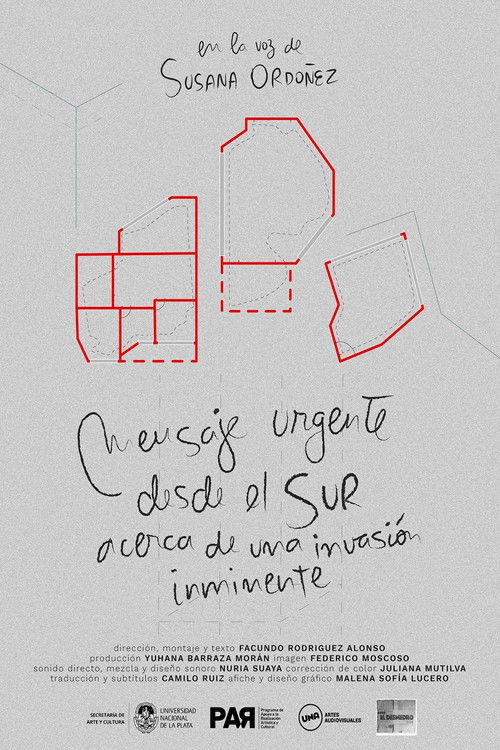 en la voz de
SUSANA ORDOÑEZ
mensaje urgente
desde el SUR
acerca de una invasión
inminente
dirección, montaje y texto FACUNDO RODRIGUEZ ALONSO
producción YUHANA BARRAZA MORÁN imagen FEDERICO MOSCOSO
sonido directo, mezcla y diseño sonoro NURIA SUAYA corrección de color JULIANA MUTILVA
traducción y subtítulos CAMILO RUIZ afiche y diseño gráfico MALENA SOFÍA LUCERO
SECRETARÍA DE
ARTE Y CULTURA
UNIVERSIDAD
NACIONAL
DE LA PLATA
PAR
Programa de
Apoyo a la
Realización
Artística y
Cultural
UNA
ARTES
AUDIOVISUALES
EL DESMADRO